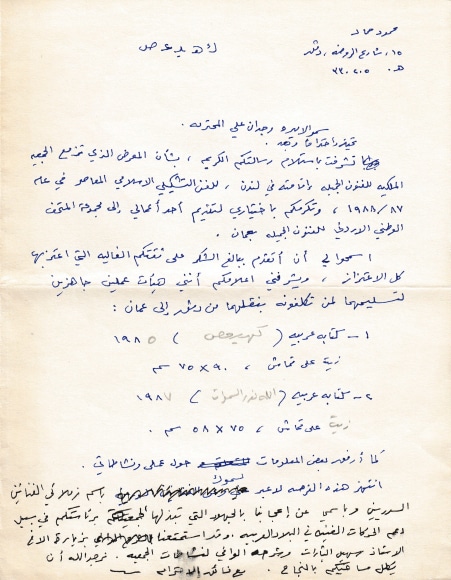 محمود حماد
١٥، شارع الروضة، دمشق
هـ. ٣٣٠٢٠٥
كهيعص
سمو الاميره وجدان علي المحترمه.
تحية واحتراما وبعد.
تشرفت باستلام رسالتكم الكريم، بشأن المعرض الذي تزمع الجمعيه
الملكيه للفنون الجميله إقامته في لندن، للفن التشكيلي الاسلامي المعاصر في عام
١٩٨٨/٨٧، وتكرمكم باختياري لتقديم أحد أعمالي إلى مجموعة المتحف
الوطني الاردني للفنون الجميله بعمان.
اسمحوا لي أن أتقدم ببالغ الشكر على ثقتكم الغاليه التي اعتز بها
كل الاعتزاز، ويشرفني اعلامكم أنني هيأت عملين جاهزين
لتسليمهما لمن تكلفونه بنقلهما من دمشق إلى عمان:
١- كتابه عربيه (كهيعص) ١٩٨٥
زيت على قماش، ٩٠×٧٥ سم
٢- كتابه عربيه (الله نور السموات) ١٩٨٧
زيت على قماش، ٧٥×٥٨ سم.
كما أرفق بعض المعلومات حول عملي ونشاطاتي.
انتهز هذه الفرصه لاعبر لسموك باسم زملائي الفنانين
السوريين وباسمي عن إعجابنا بالجهود التي تبذلها برئاستكم في سبيل
دعم الحركات الفنيه في البلاد العربيه. وقد استمتعنا بزيارة الاخ
الاستاذ سهيل وشرحه الوافي لنشاطات الجمعيه. نرجو الله أن
يكلل مساعيكم بالنجاح. مع فائق الاحترام